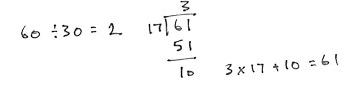 60 ÷ 30 = 2
3
17 61
51
10
3 x 17 + 10 = 61